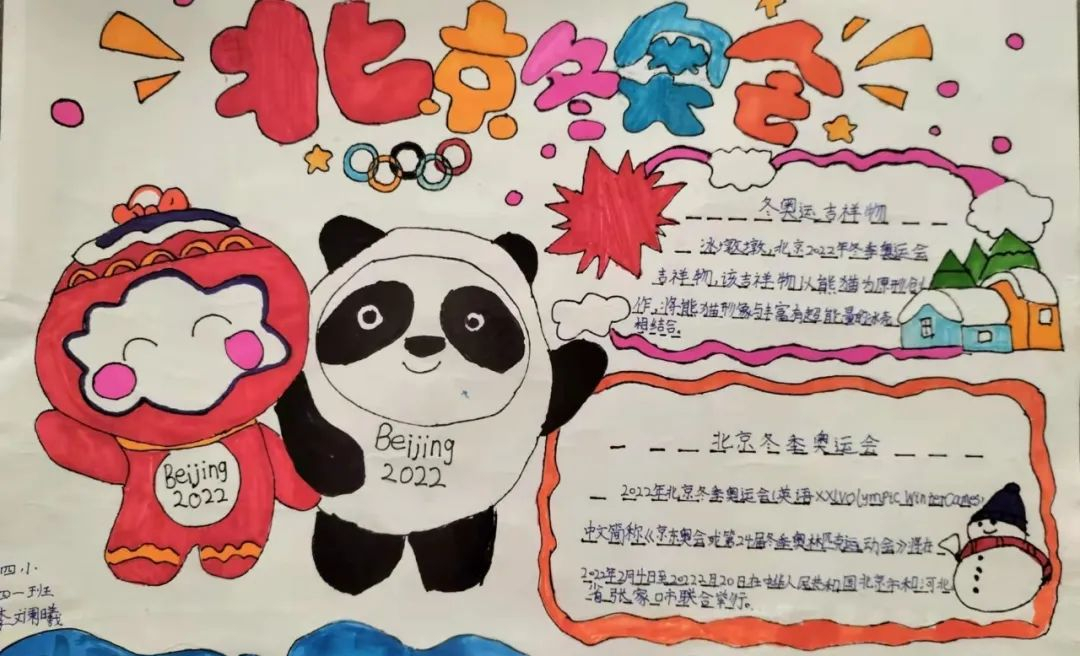 北京冬奥会
冬奥运吉祥物
冰墩墩,北京2022年冬季奥运会
吉祥物,该吉祥物以熊猫为原型创
作,将熊猫形像与丰富有超能量的冰壳
相结合。
Beijing
2022
Beijing
2022
北京冬季奥运会
2022年北京冬季奥运会(英语XXIVOlympic Winter Games,
中文简称《京东奥会或第24届冬季奥林匹克运动会》是在
2022年2月4日至2022年2月20日在中华人民共和国北京市和河北
省张家口市联合举行。
四小
四一班